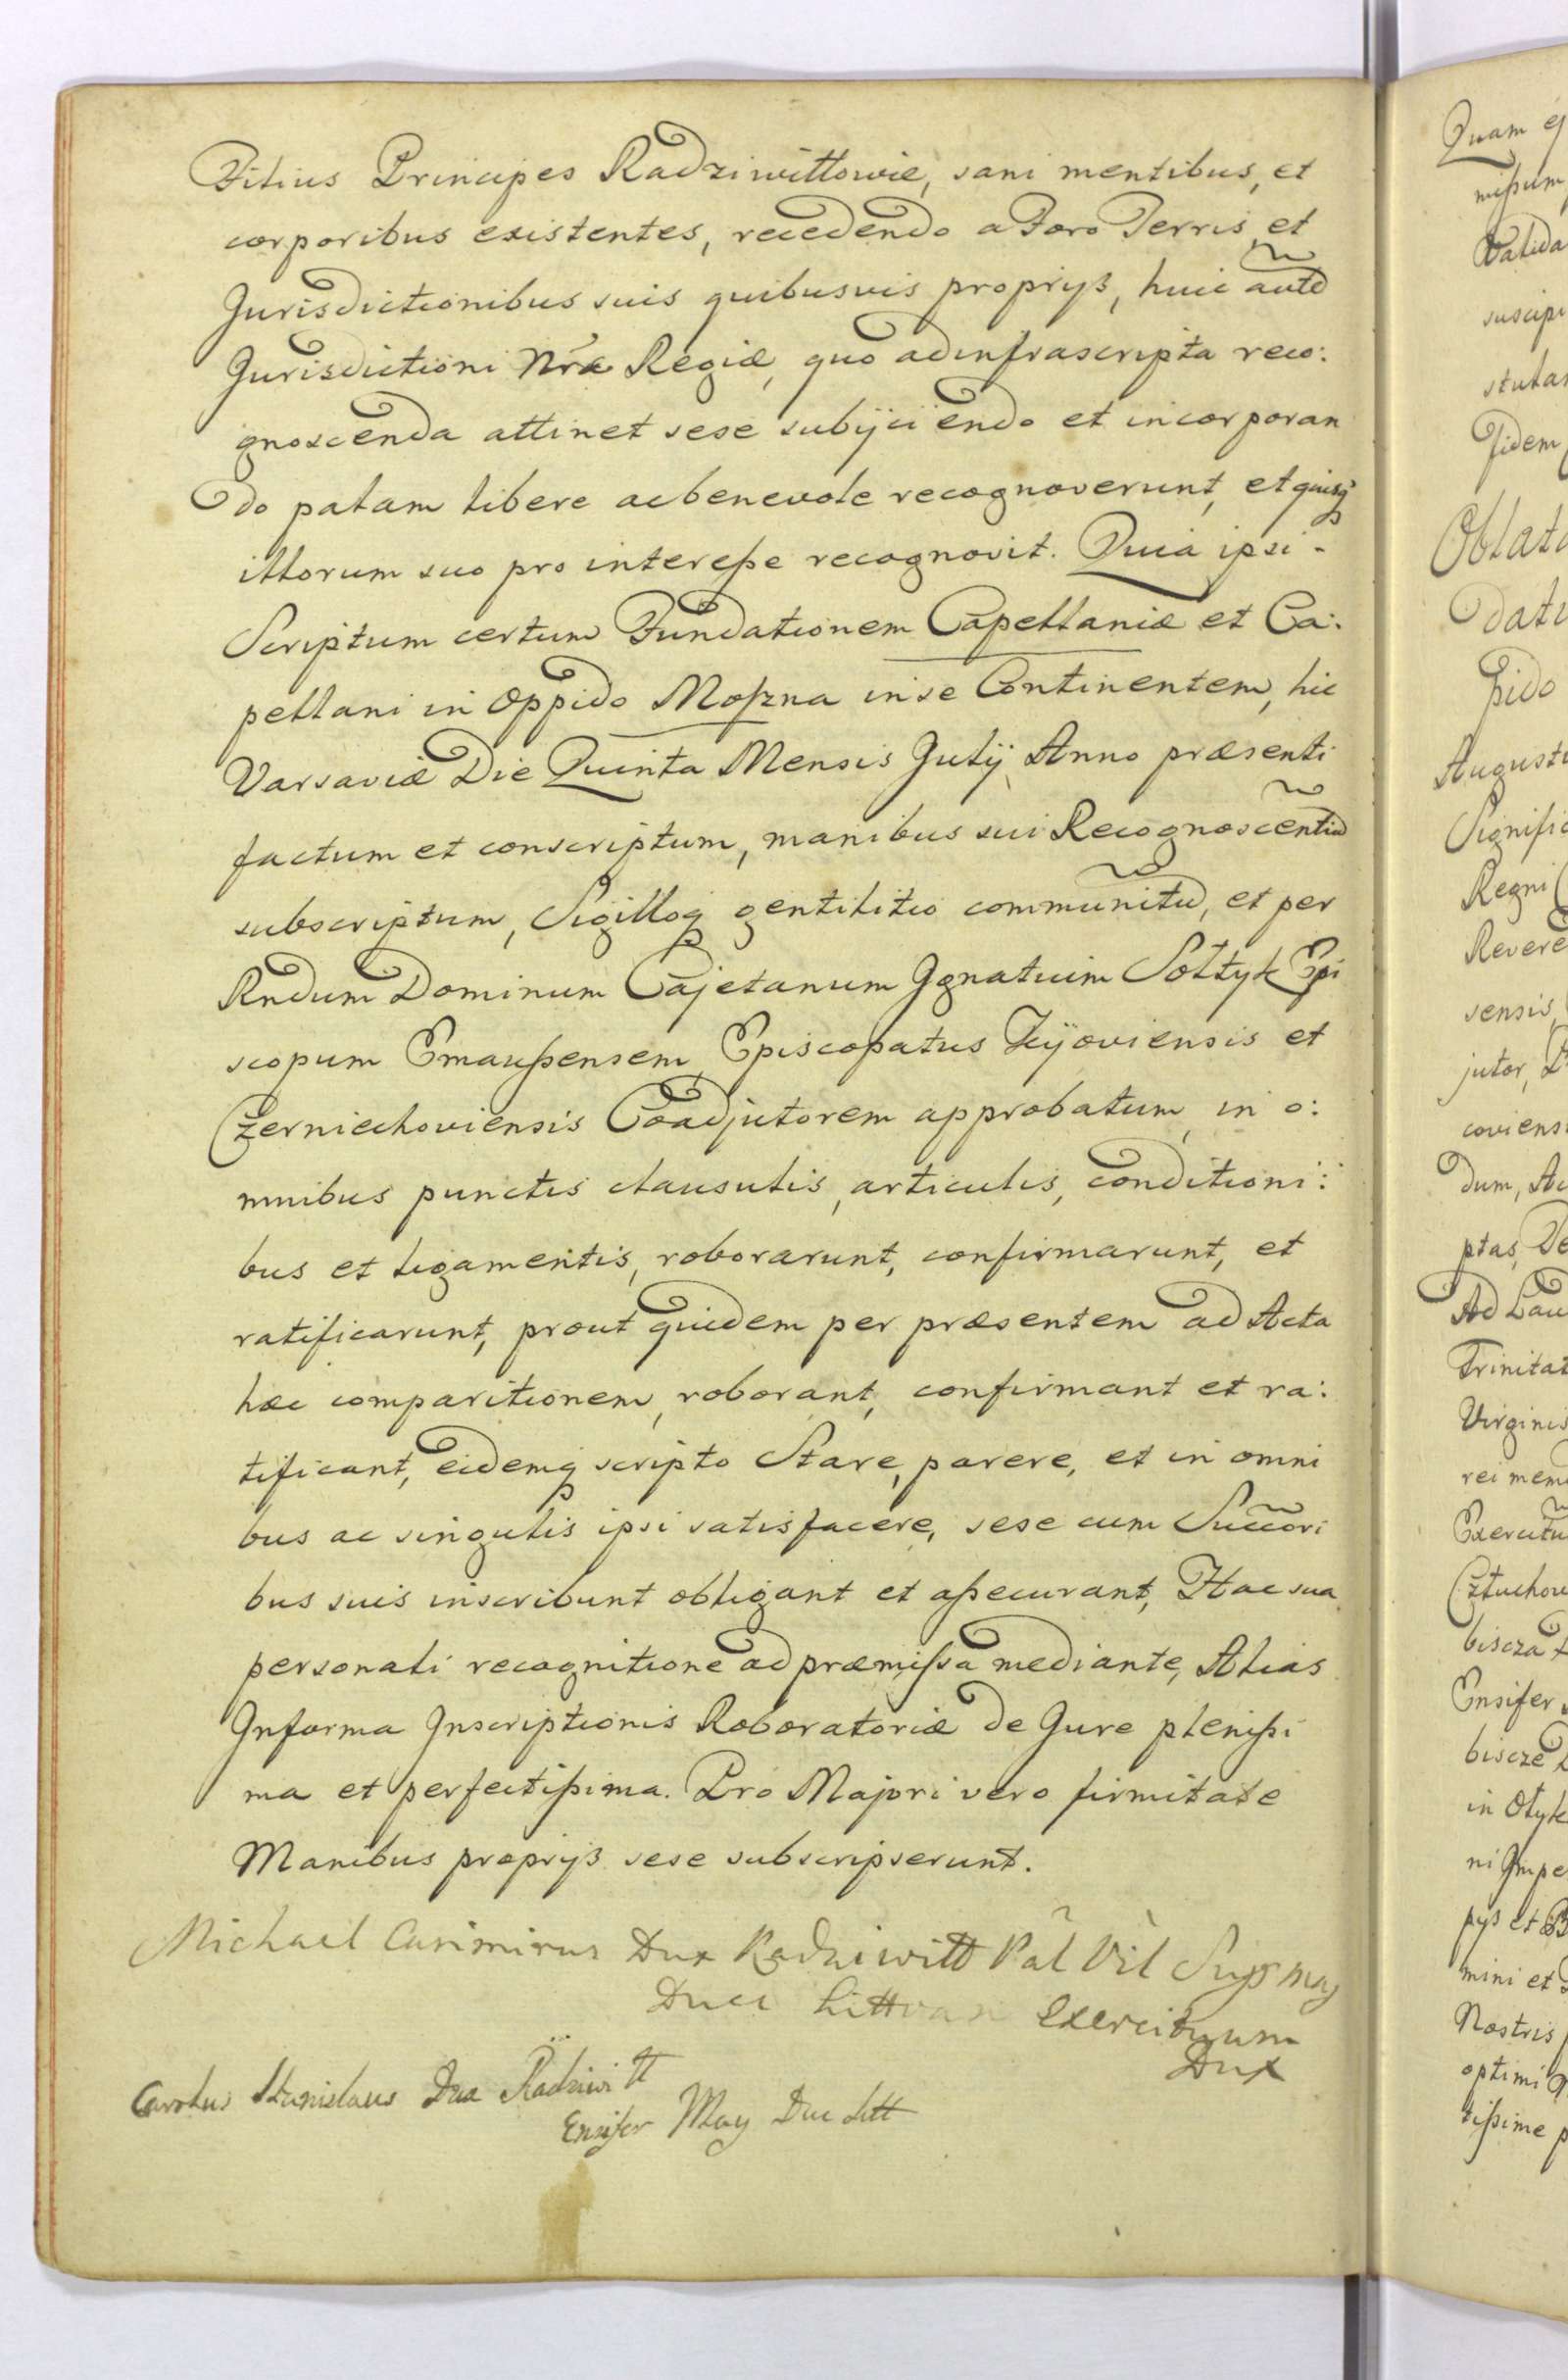 Filius Principes Radziwiłłowie, sani mentibus, et
corporibus existentes, recedendo a Foro Terris, et
Jurisdictionibus suis quibusvis proprijs, huic aute
Jurisdictioni Nræ Regiæ, quo adinfrascripta reco:
gnoscenda attinet sese subijciendo et incorporan
do palam libere acbenevole recognoverunt, et quisq
illorum suo pro interesse recognovit. Quia ipsi -
Scriptum certum Fundationem Capellaniæ et Ca:
pellani in Oppido Moszna in se Continentem, hic
Varsaviæ Die Quinta Mensis Julij Anno præsenti
factum et conscriptum, manibus sui Recognoscentiu
subscriptum, Sigilloq gentilitio communitu, et per
Rndum Dominum Cajetanum Ignatium Sołtyk Epi
scopum Emaussensem, Episcopatus Kijoviensis et
Czerniechoviensis Coadjutorem approbatum, in o:
mnibus punctis clausulis, articulis, conditioni:
bus et ligamentis, roborarunt, confirmarunt, et
ratificarunt, prout quidem per præsentem ad Acta
hæc comparitionem, roborant, confirmant et ra:
tificant, eidemq scripto Stare, parere, et in omni
bus ac singulis ipsi satisfacere, sese cum Succori
bus suis inscribunt obligant et assecurant, Hac sua
personali recognitione ad præmissa mediante, Alias
Informa Inscriptionis Roboratoriæ de Jure plenissi
ma et perfectissima. Pro Majori vero firmitate
Manibus proprijs sese subscripserunt.
Michael Casimirus Dux Radziwiłł Pal Vil Sup mag
Duci Littvan Exercituum
Dux
Carolus Stanislaus Dux Radziwiłł
Ensifer Mag Duc Litt
Quam
missum
Valida
suscipi
Fidem
Oblat
datu
pido
Augusti
Signific
Regni
Revere
sensis
jutor,
coviens
dum,
ptas, De
Ad Lau
Trinitat
Virginis
rei mem
Exercitu
Człuchow
biscza
Ensifer
biscze
in Ołyk
ni Impe
pijs et
mini et
Nostris
optimi
tissime p